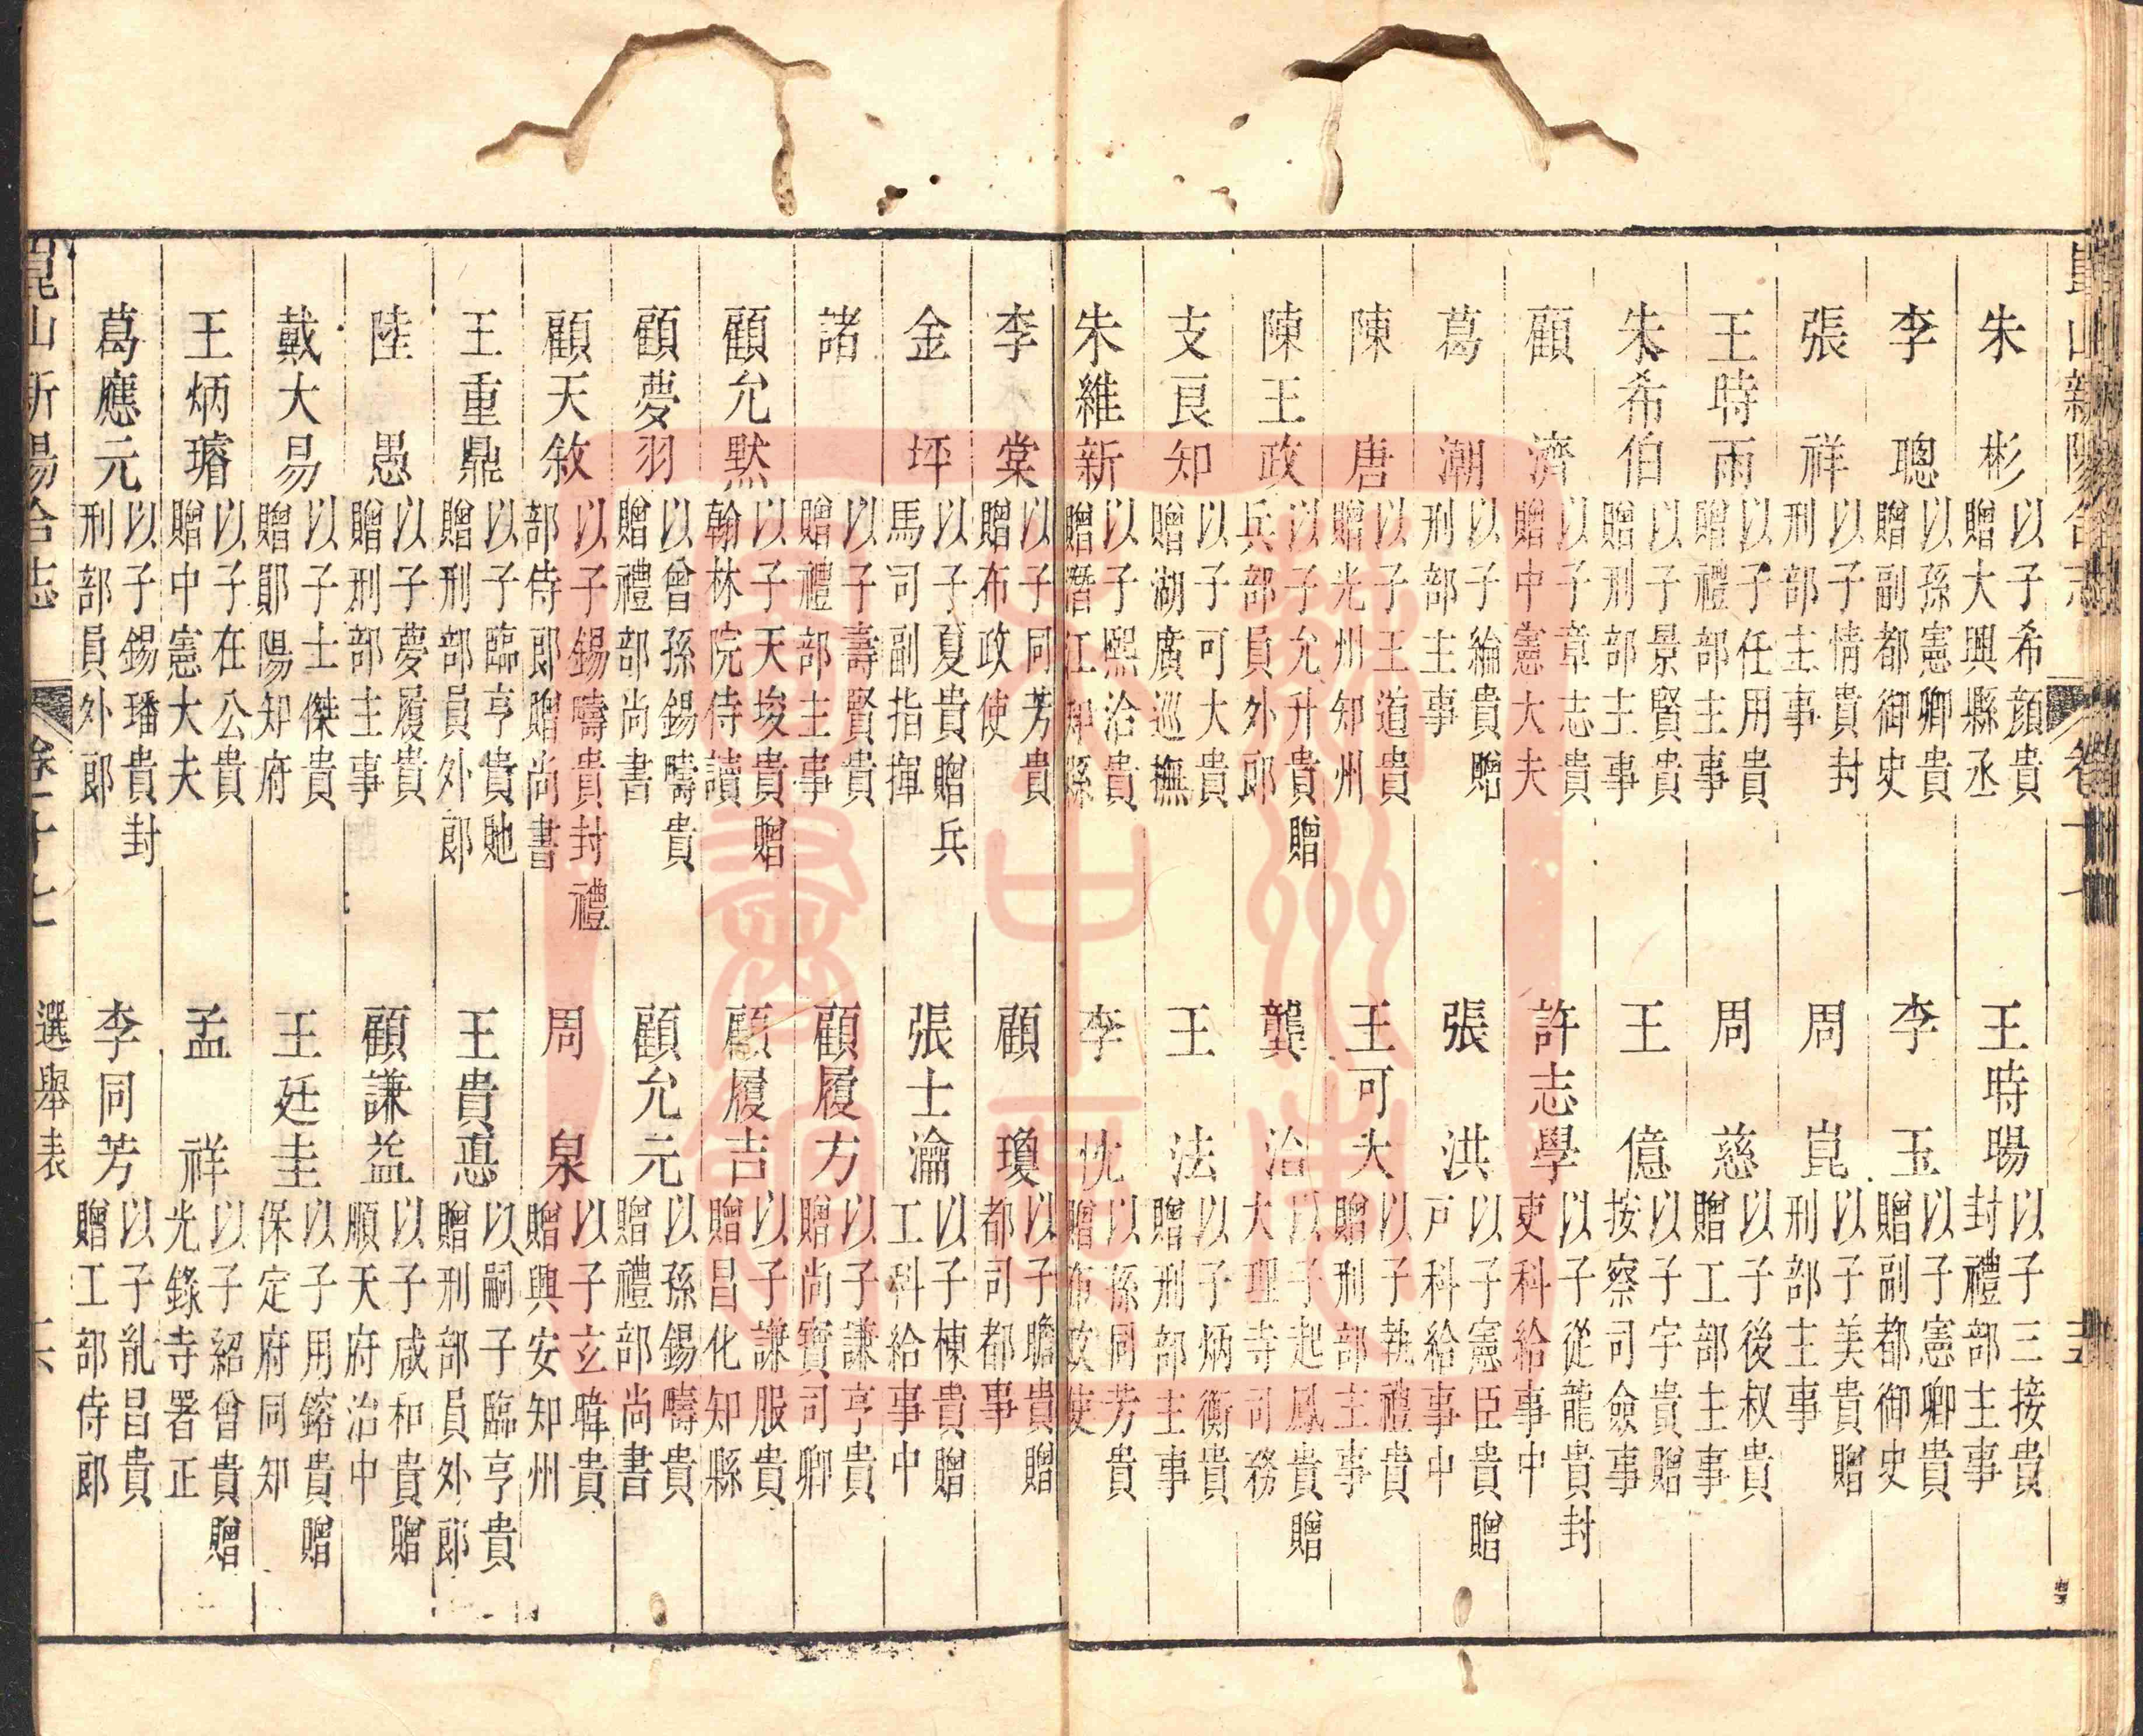 崑山新陽合志 卷十七
朱彬 以子希顔貴贈大興縣丞 王時暘 以子三接貴封禮部主事
李聰 以孫憲卿貴贈副都御史 李玉 以子憲卿貴贈副都御史
張祥 以子情貴封刑部主事 周崑 以子美貴贈刑部主事
王時雨 以子任用貴贈禮部主事 周慈 以子後叔貴贈工部主事
朱希伯 以子景賢貴贈刑部主事 王億 以子宇貴贈按察司僉事
顧濟 以子章志貴贈中憲大夫 許志學 以子從龍貴封吏科給事中
葛潮 以子綸貴贈刑部主事 張洪 以子憲臣貴贈戸科給事中
陳唐 以子王道貴贈光州知州 王可大 以子執禮貴贈刑部主事
陳王政 以子允升貴贈兵部員外郎 龔治 以子起鳳貴贈大理寺司務
支良知 以子可大貴贈湖廣巡撫 王法 以子炳衡貴贈刑部主事
朱維新 以子熙洽貴贈潛江知縣 李忱 以孫同芳貴贈布政使
李棠 以子同芳貴贈布政使 顧瓊 以子瞻貴贈都司都事
金坪 以子夏貴贈兵馬司副指揮 張士瀹 以子棟貴贈工科給事中
諸 以子壽賢貴贈禮部主事 顧履方 以子謙亨貴贈尚寶司卿
顧允默 以子天埈貴贈翰林院侍讀 顧履吉 以子謙服貴贈昌化知縣
顧夢羽 以曾孫錫疇貴贈禮部尚書 顧允元 以孫錫疇貴贈禮部尚書
顧天敘 以子錫疇貴封禮部侍郎贈尚書 周泉 以子玄暐貴贈興安知州
王重鼎 以子臨亨貴貤贈刑部員外郎 王貴悳 以嗣子臨亨貴贈刑部員外郎
陸愚 以子夢履貴贈刑部主事 顧謙益 以子咸和貴贈順天府治中
戴大易 以子士傑貴贈鄖陽知府 王廷圭 以子用鎔貴贈保定府同知
王炳璿 以子在公貴贈中憲大夫 孟祥 以子紹曾貴贈光錄寺署正
葛應元 以子錫璠貴封刑部員外郎 李同芳 以子胤昌貴贈工部侍郎
崑山新陽合志 卷二十七 選舉表 十六